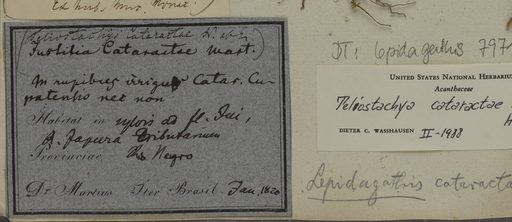 Ed hus. Mus. Monac.
(Teliostachys Cataractae N. ab E.)
Justitia Cataractae Mart.
In rupibus irriguis Catar. Cu-
patensis nec non
Habitat in sylvis ad fl. Içui,
H. Japura tributarium
Provinciae R. Negro
Dr. Martius Iter Brasil. Jan. 1820
DT: Lepidagathis 797
UNITED STATES NATIONAL HERBARIU
Acanthaceae
Teliostachya cataractae
DIETER C. WASSHAUSEN II-1988
Lepidagathis cataracta